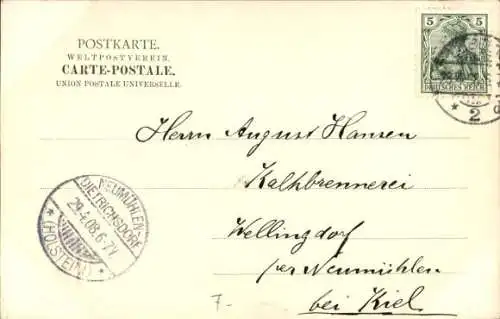 POSTKARTE.
WELTPOSTVEREIN.
CARTE-POSTALE.
UNION POSTALE UNIVERSELLE.
5 5
DEUTSCHES REICH
* 2
Herrn August Hansen
Kalkbrennerei
Wellingdorf
per Neumühlen
bei Kiel.
NEUMÜHLEN-
DIETRICHSDORF
29.4.08.6-7V
* (HOLSTEIN) *
7-